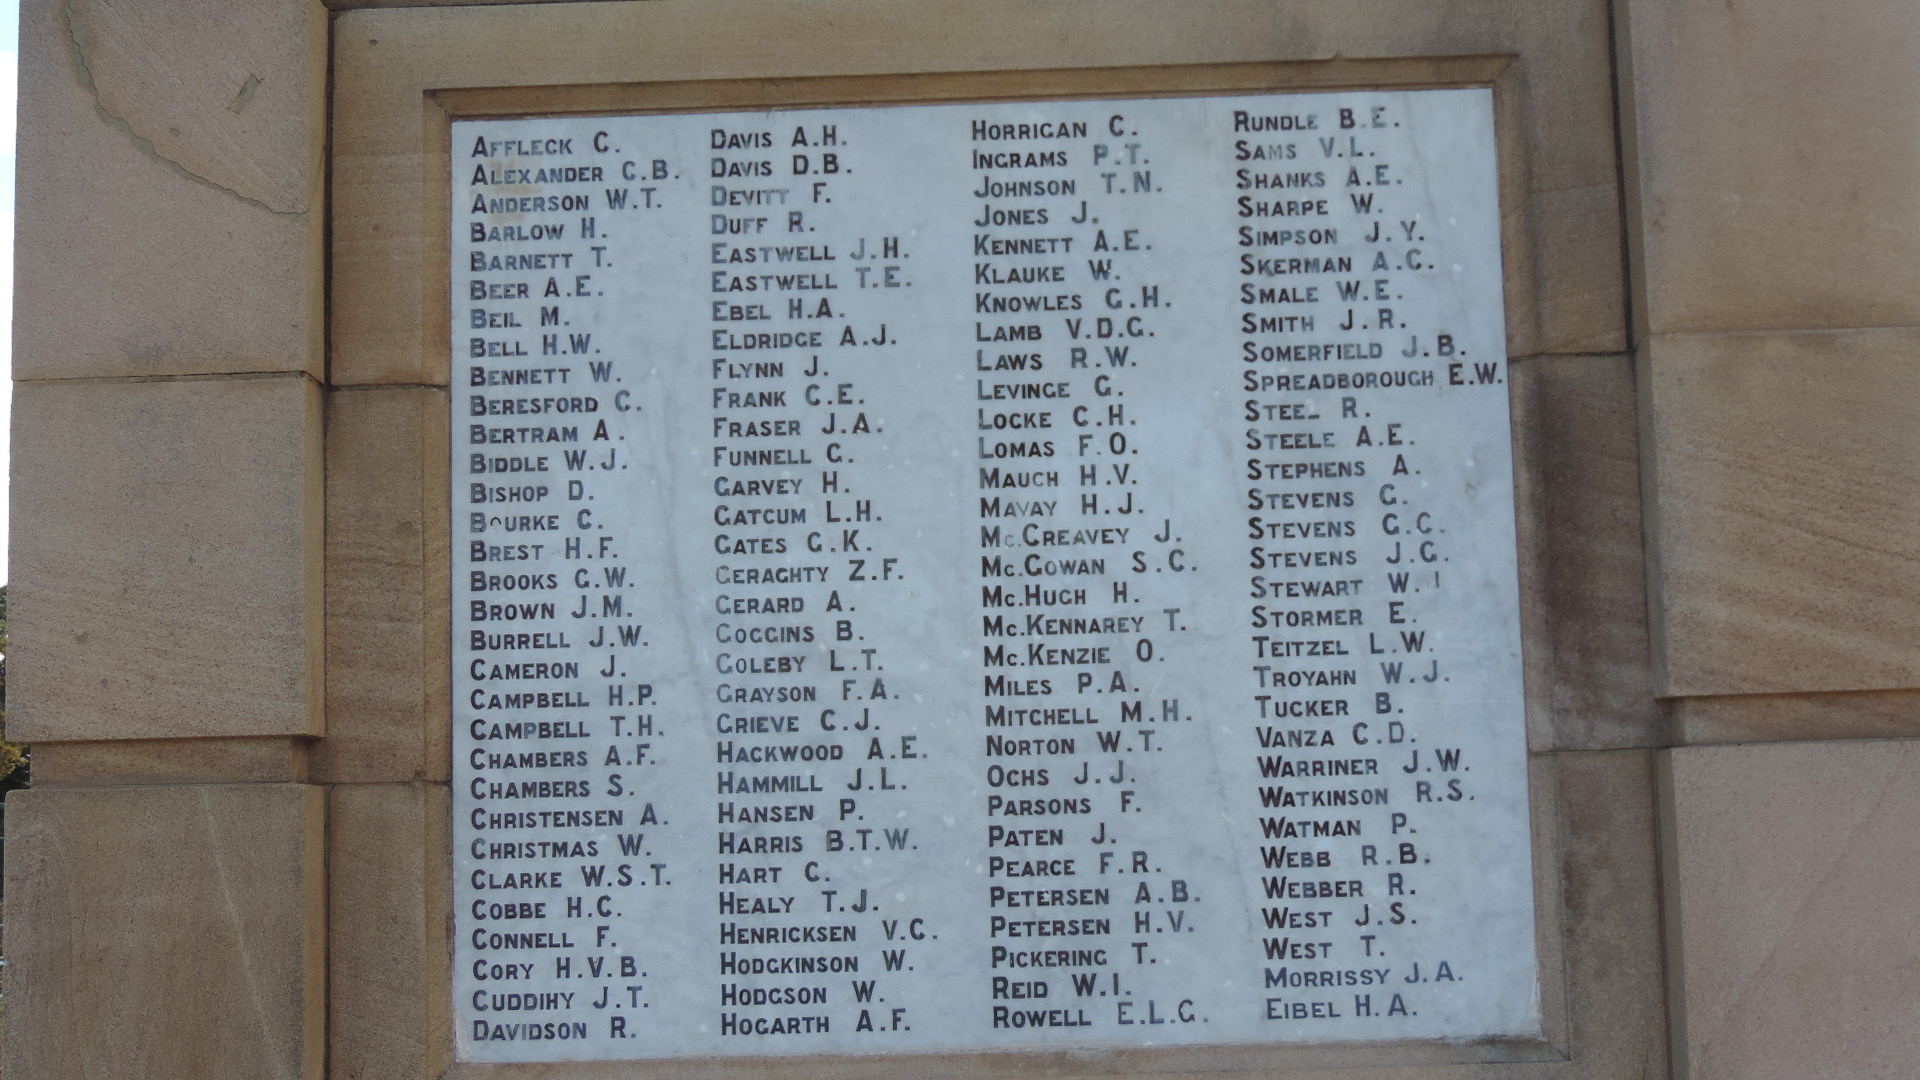 AFFLECK C.
ALEXANDER C.B.
ANDERSON W.T.
BARLOW H.
BARNETT T.
BEER A.E.
BEIL M.
BELL H.W.
BENNETT W.
BERESFORD C.
BERTRAM A.
BIDDLE W.J.
BISHOP D.
BOURKE C.
BREST H.F.
BROOKS G.W.
BROWN J.M.
BURRELL J.W.
CAMERON J.
CAMPBELL H.P.
CAMPBELL T.H.
CHAMBERS A.F.
CHAMBERS S.
CHRISTENSEN A.
CHRISTMAS W.
CLARKE W.S.T.
COBBE H.C.
CONNELL F.
CORY H.V.B.
CUDDIHY J.T.
DAVIDSON R.
DAVIS A.H.
DAVIS D.B.
DEVITT F.
DUFF R.
EASTWELL J.H.
EASTWELL T.E.
EBEL H.A.
ELDRIDGE A.J.
FLYNN J.
FRANK C.E.
FRASER J.A.
FUNNELL C.
GARVEY H.
GATCUM L.H.
GATES G.K.
GERAGHTY Z.F.
GERARD A.
GOGGINS B.
GOLEBY L.T.
GRAYSON F.A.
GRIEVE C.J.
HACKWOOD A.E.
HAMMILL J.L.
HANSEN P.
HARRIS B.T.W.
HART C.
HEALY T.J.
HENRICKSEN V.C.
HODGKINSON W.
HODGSON W.
HOGARTH A.F.
HORRIGAN C.
INGRAMS P.T.
JOHNSON T.N.
JONES J.
KENNETT A.E.
KLAUKE W.
KNOWLES G.H.
LAMB V.D.G.
LAWS R.W.
LEVINGE G.
LOCKE C.H.
LOMAS F.O.
MAUCH H.V.
MAVAY H.J.
MC.CREAVEY J.
MC.GOWAN S.C.
MC.HUGH H.
MC.KENNAREY T.
MC.KENZIE O.
MILES P.A.
MITCHELL M.H.
NORTON W.T.
OCHS J.J.
PARSONS F.
PATEN J.
PEARCE F.R.
PETERSEN A.B.
PETERSEN H.V.
PICKERING T.
REID W.I.
ROWELL E.L.G.
RUNDLE B.E.
SAMS V.L.
SHANKS A.E.
SHARPE W.
SIMPSON J.Y.
SKERMAN A.C.
SMALE W.E.
SMITH J.R.
SOMERFIELD J.B.
SPREADBOROUGH E.W.
STEEL R.
STEELE A.E.
STEPHENS A.
STEVENS G.
STEVENS G.C.
STEVENS J.G.
STEWART W.
STORMER E.
TEITZEL L.W.
TROYAHN W.J.
TUCKER B.
VANZA C.D.
WARRINER J.W.
WATKINSON R.S.
WATMAN P.
WEBB R.B.
WEBBER R.
WEST J.S.
WEST T.
MORRISSY J.A.
EIBEL H.A.